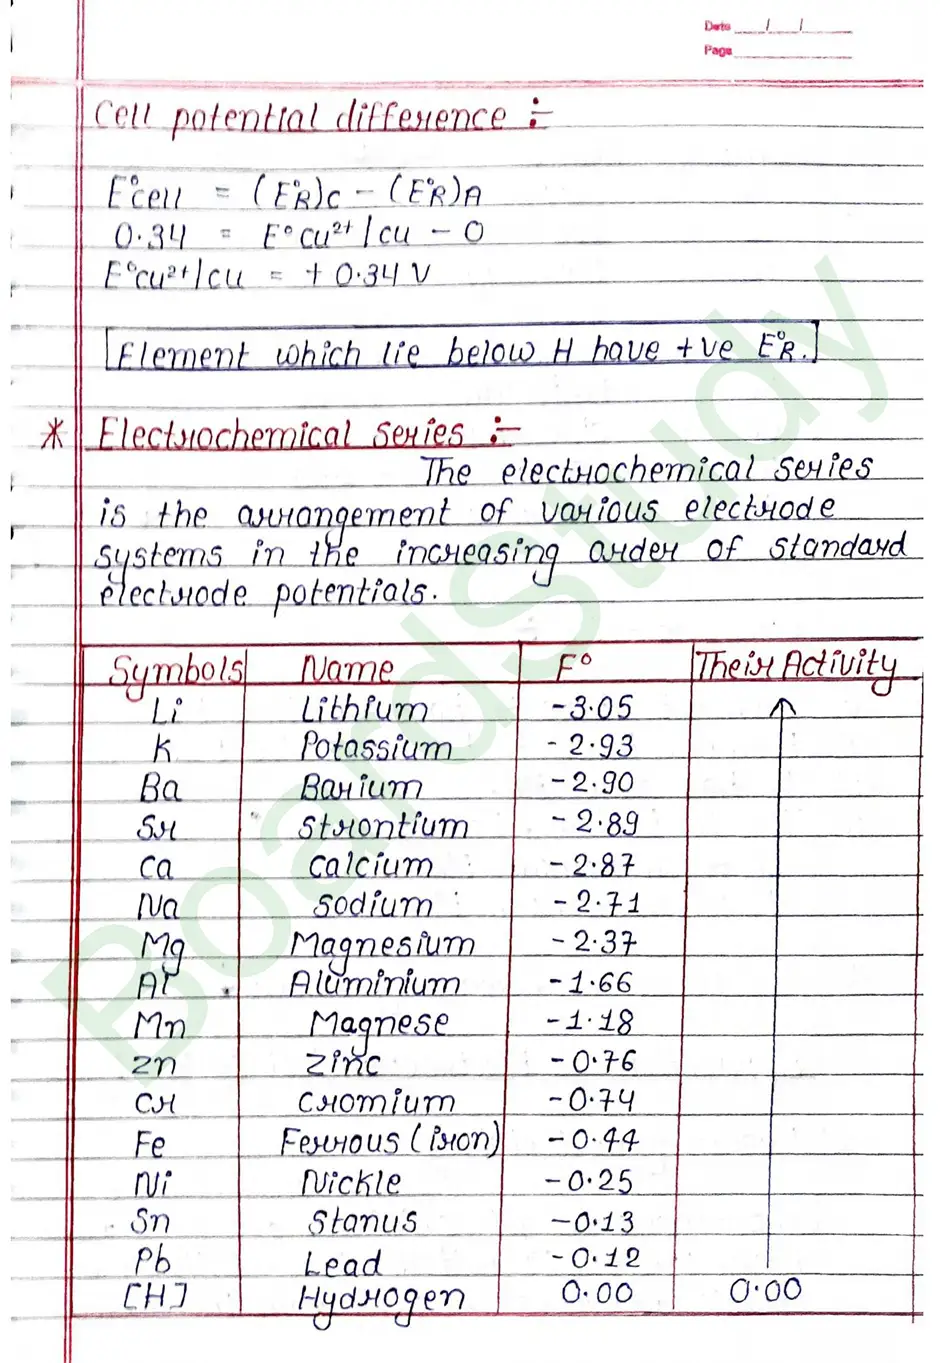 Date / /
Page
Cell potential difference :-
E°cell = (E°R)C - (E°R)A
0.34 = E° Cu²⁺/Cu - 0
E°Cu²⁺/Cu = + 0.34 V
Element which lie below H have +ve E°R.
* Electrochemical series :-
The electrochemical series
is the arrangement of various electrode
systems in the increasing order of standard
electrode potentials.
Symbols Name E° Their Activity
Li Lithium -3.05
K Potassium -2.93
Ba Barium -2.90
Sr Strontium -2.89
Ca Calcium -2.87
Na Sodium -2.71
Mg Magnesium -2.37
Al Aluminium -1.66
Mn Magnese -1.18
Zn Zinc -0.76
Cr Cromium -0.74
Fe Ferrous (iron) -0.44
Ni Nickle -0.25
Sn Stanus -0.13
Pb Lead -0.12
[H] Hydrogen 0.00 0.00
BoardStudy